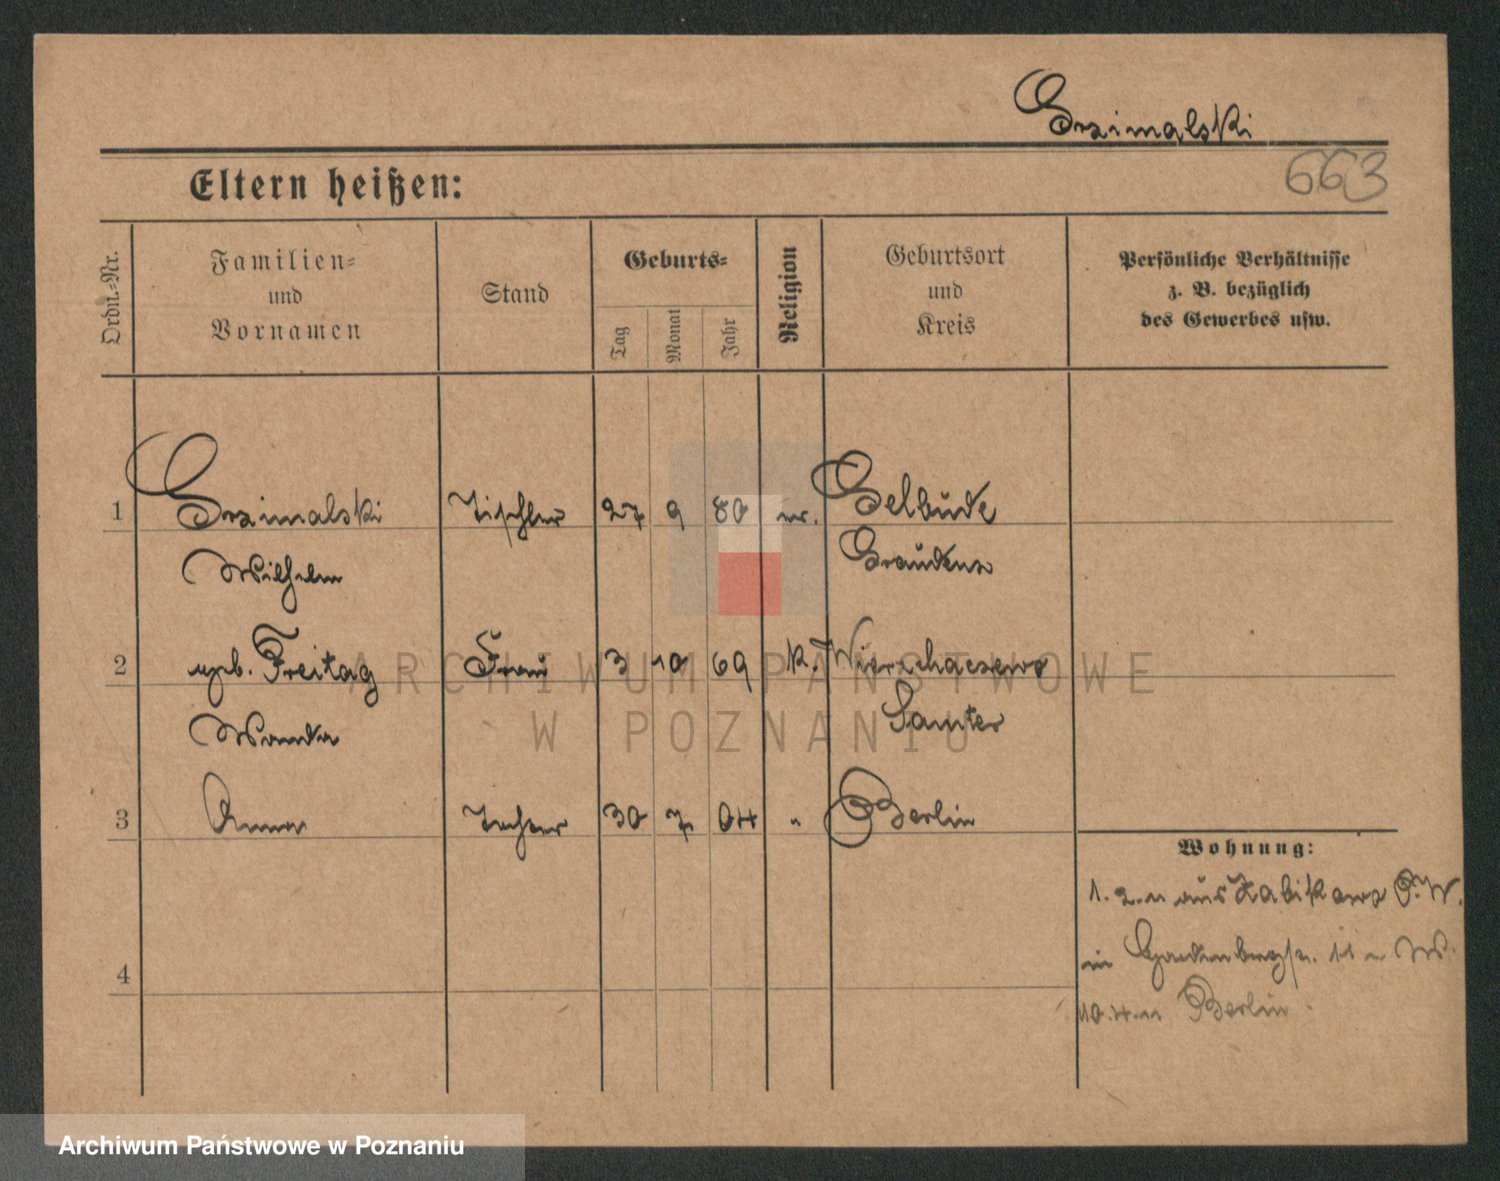 Grzimalski
663
Eltern heißen:
Ordn.-Nr.
Familien- und Vornamen
Stand
Geburts-
Tag
Monat
Jahr
Religion
Geburtsort und Kreis
Persönliche Verhältnisse z. B. bezüglich des Gewerbes usw.
1 Grzimalski Tischler 27 9 80 ev. Gelbude
Wilhelm Graudenz
2 geb. Freitag Frau 3 10 69 k. Wierzchaczewo
Wanda Samter
3 Anna Tochter 30 7 04 " Berlin
Wohnung:
1. 2. 11 aus Zabikowo P. W.
in 11
4
10. 4. 11 Berlin
ARCHIWUM PAŃSTWOWE
W POZNANIU
Archiwum Państwowe w Poznaniu